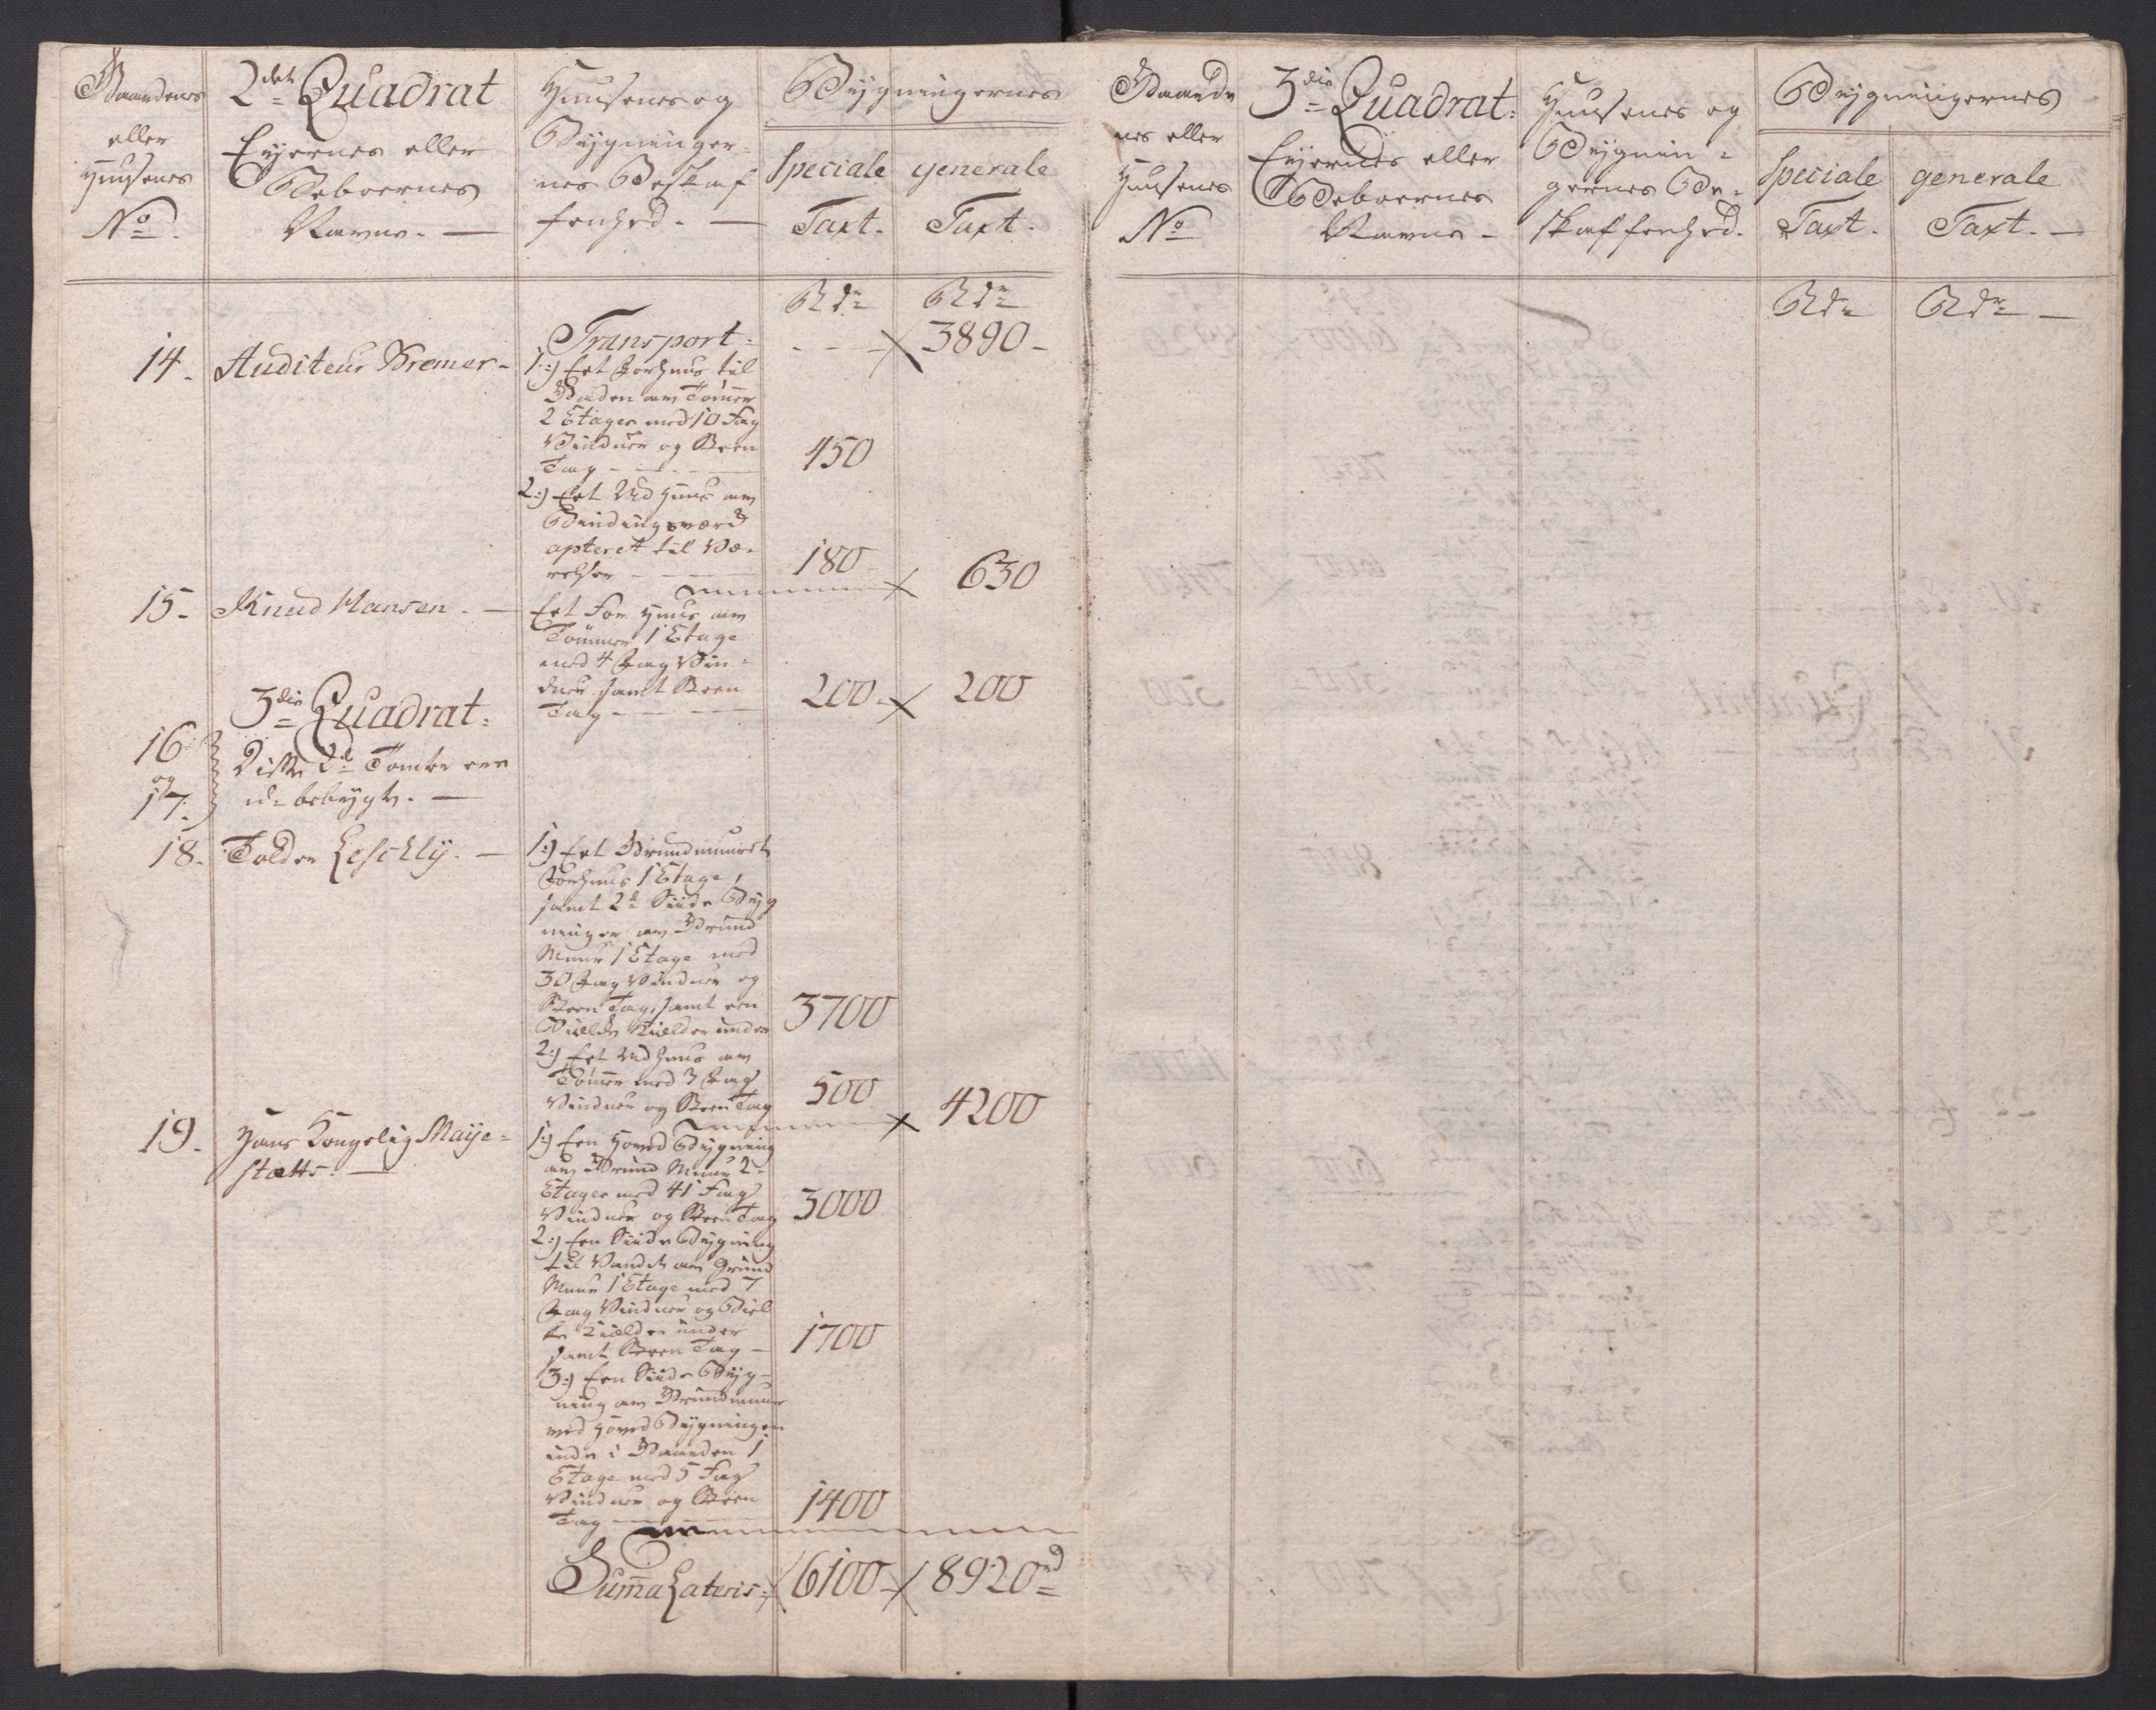 Gaardenes
eller
Huusenes
No
2det Quadrat
Eyernes eller
Beboernes
Navne. —
Huusenes og
Bygninger-
nes Beskaf
fenhed. —
Bygningernes
Speciale
Taxt.
generale
Taxt.
Rdr
Rdr
Transport-
3890-
14.
Auditeur Bremer-
1:) Eet Forhuus til
Gaden am Tømer
2 Etager med 10 Fag
Vinduer og Steen
Tag
450
2:) Eet Udhuus am
Bindingsværk
apteret til Væ-
relser
180
630
15.
Knud Hansen. —
Eet For Huus am
Tømmer 1 Etage
med 4 Fag Vin-
duer samt Steen
Tag
200
200
3die Quadrat.
16
og
17.
Disse 2de Tomter ere
u-bebygte. —
18.
Tolder Leschly. —
1:) Eet Grundmuuret
Forhuus 1 Etage,
samt 2de Siide Byg
ninger am Grund
Muur 1 Etage med
30 Fag Vinduer og
Steen Tag, samt een
Kielder under
3700
2:) Eet Udhuus am
Tømer med 3 Fag
Vinduer og Steen Tag
500
4200
19.
Hans Kongelig Maije-
stætts. —
1:) Een Hoved Bygning
am Grund Muur 2-
Etager med 41 Fag
Vinduer og Steen Tag
3000
2:) Een Siide Bygning
til Vandet am Grund
Muur 1 Etage med 7
Fag Vinduer og
Kielder under
samt Steen Tag —
1700
3:) Een Siide Byg-
ning am Grundmuur
ved Hoved Bygningen
inde i Gaarden 1
Etage med 5 Fag
Vinduer og Steen
Tag
1400
Suma Lateris-
6100
8920rd
Gaarde
nes eller
Huusenes
No
3die Quadrat.
Eyernes eller
Beboernes
Navne -
Huusenes og
Bygnin-
gernes Be-
skaffenhed.
Bygningernes
Speciale
Taxt.
generale
Taxt. —
Rdr
Rdr —